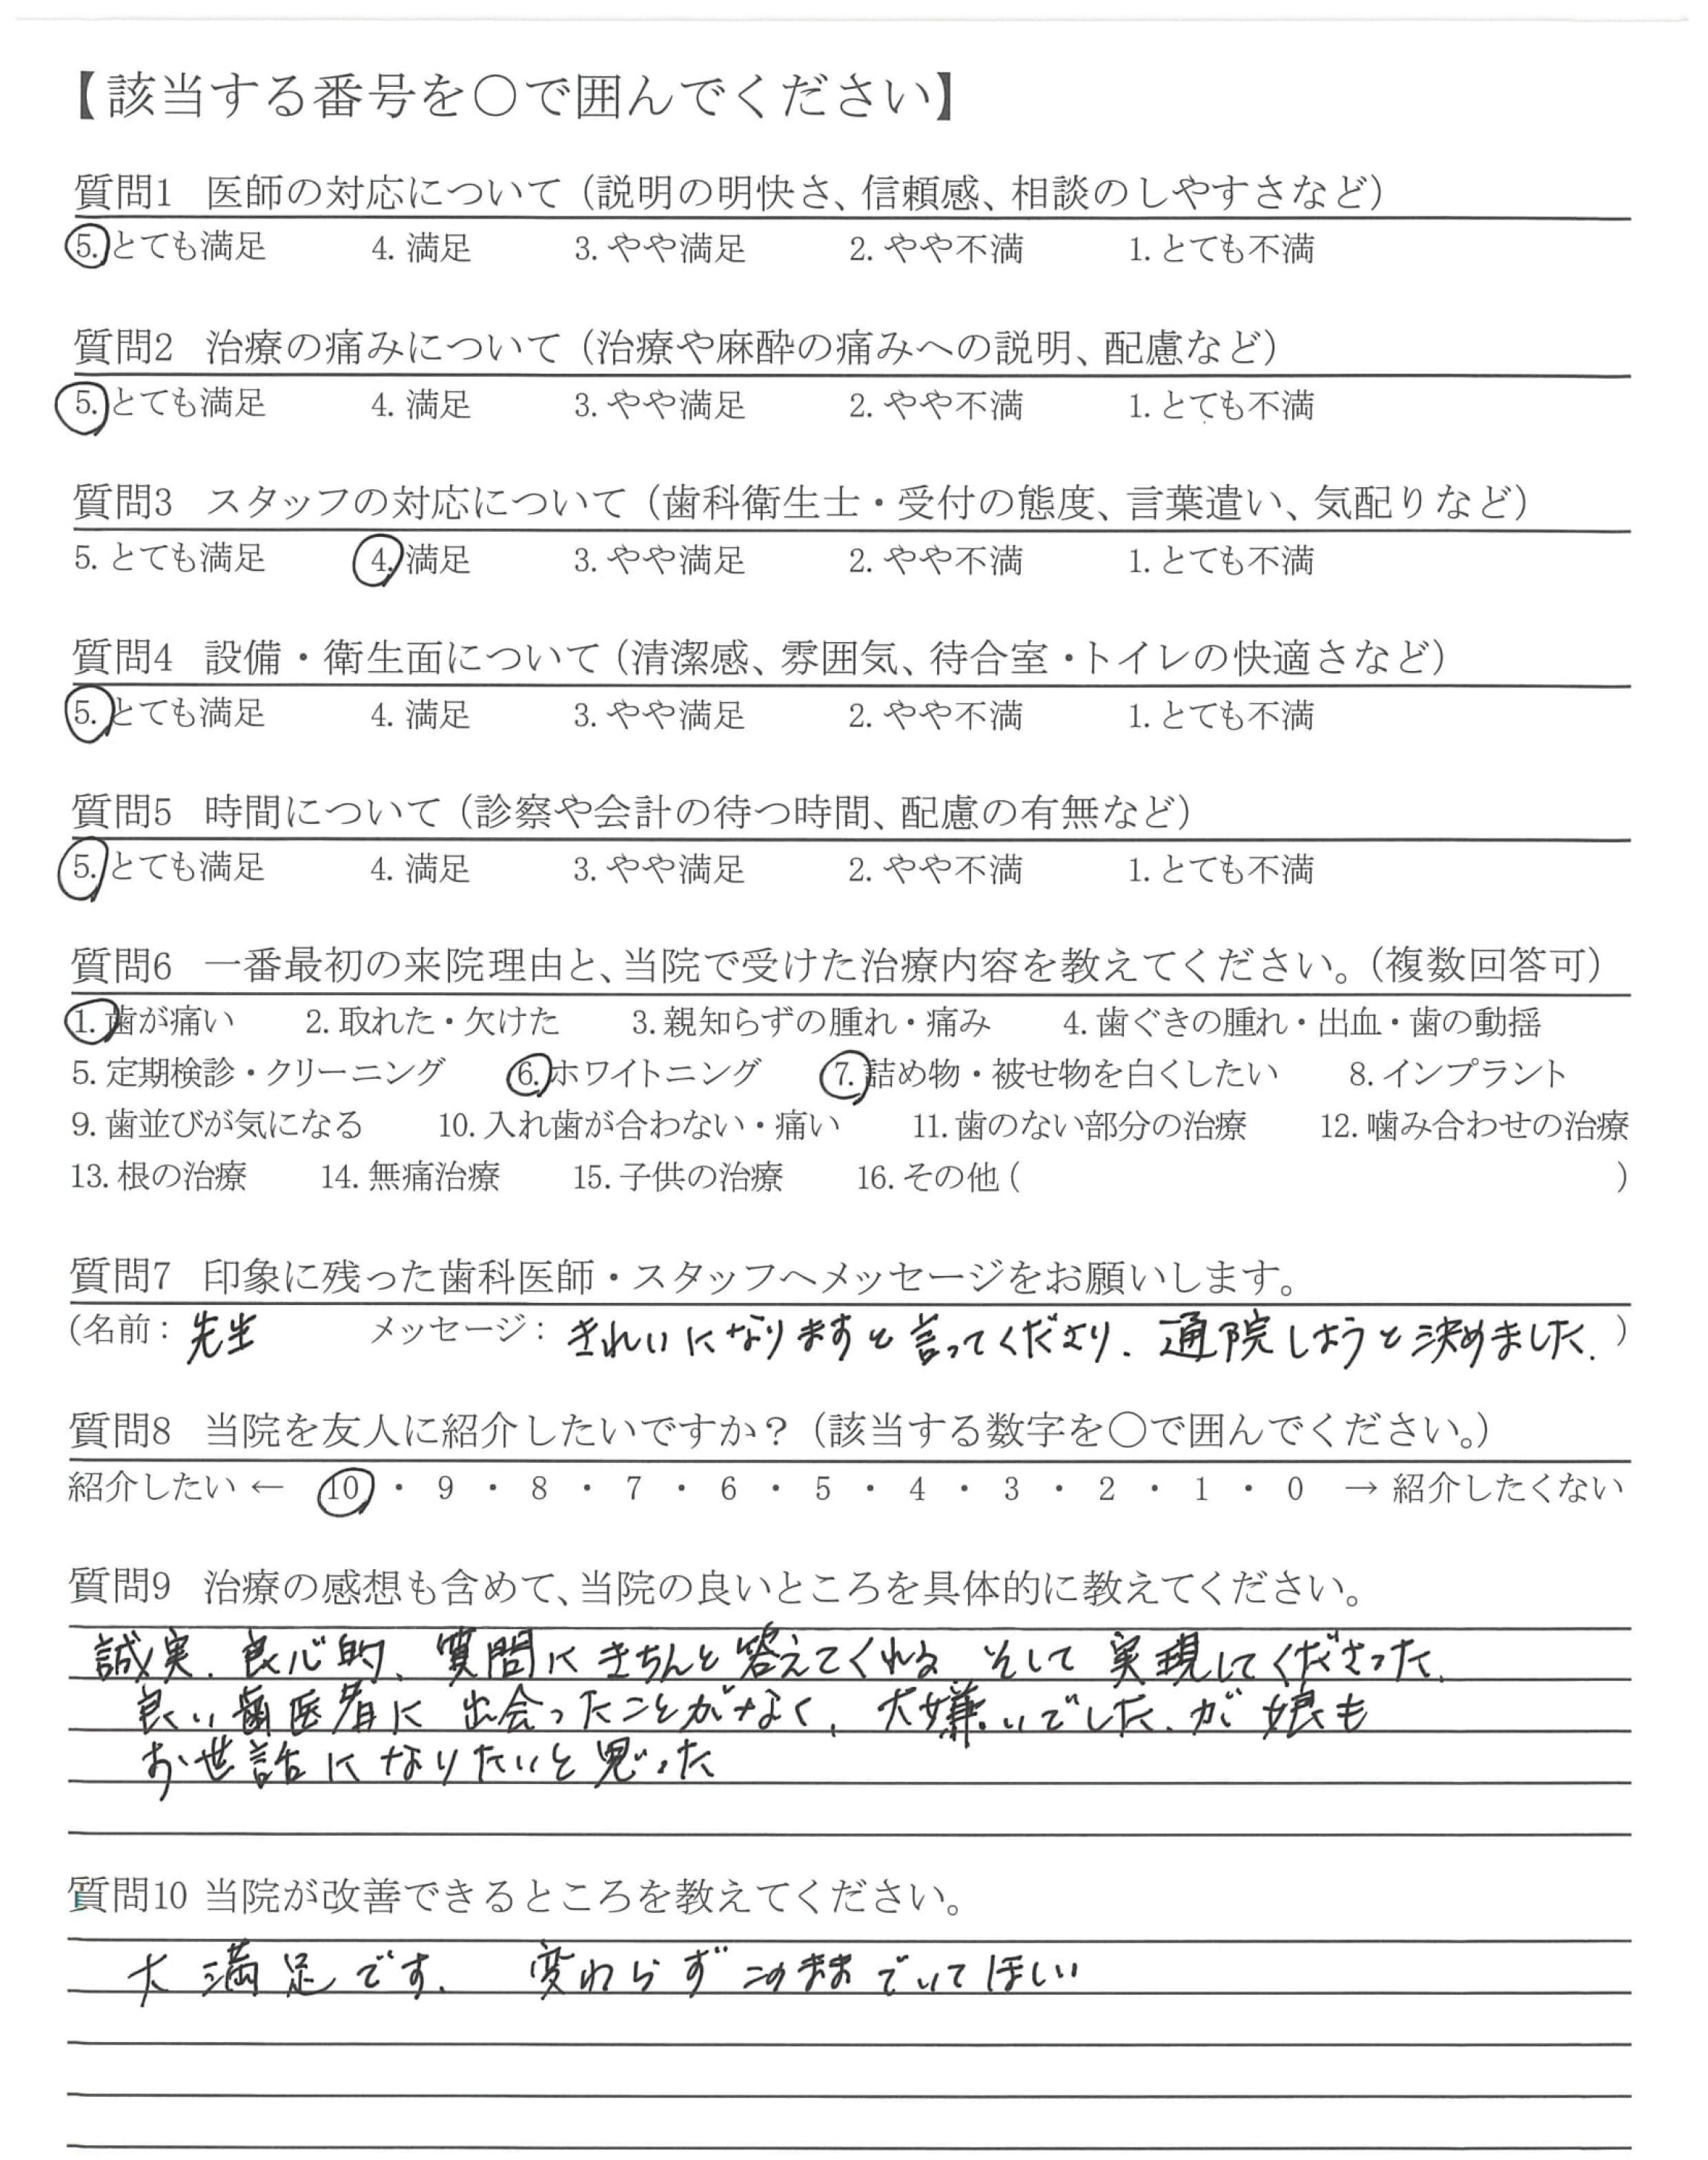 【該当する番号を○で囲んでください】
質問1 医師の対応について（説明の明快さ、信頼感、相談のしやすさなど）
5. とても満足 4. 満足 3. やや満足 2. やや不満 1. とても不満
質問2 治療の痛みについて（治療や麻酔の痛みへの説明、配慮など）
5. とても満足 4. 満足 3. やや満足 2. やや不満 1. とても不満
質問3 スタッフの対応について（歯科衛生士・受付の態度、言葉遣い、気配りなど）
5. とても満足 4. 満足 3. やや満足 2. やや不満 1. とても不満
質問4 設備・衛生面について（清潔感、雰囲気、待合室・トイレの快適さなど）
5. とても満足 4. 満足 3. やや満足 2. やや不満 1. とても不満
質問5 時間について（診察や会計の待つ時間、配慮の有無など）
5. とても満足 4. 満足 3. やや満足 2. やや不満 1. とても不満
質問6 一番最初の来院理由と、当院で受けた治療内容を教えてください。（複数回答可）
1. 歯が痛い 2. 取れた・欠けた 3. 親知らずの腫れ・痛み 4. 歯ぐきの腫れ・出血・歯の動揺
5. 定期検診・クリーニング 6. ホワイトニング 7. 詰め物・被せ物を白くしたい 8. インプラント
9. 歯並びが気になる 10. 入れ歯が合わない・痛い 11. 歯のない部分の治療 12. 噛み合わせの治療
13. 根の治療 14. 無痛治療 15. 子供の治療 16. その他（ ）
質問7 印象に残った歯科医師・スタッフへメッセージをお願いします。
（名前：先生 メッセージ：きれいになりますと言ってくださり、通院しようと決めました。）
質問8 当院を友人に紹介したいですか？（該当する数字を○で囲んでください。）
紹介したい ← 10 ・ 9 ・ 8 ・ 7 ・ 6 ・ 5 ・ 4 ・ 3 ・ 2 ・ 1 ・ 0 → 紹介したくない
質問9 治療の感想も含めて、当院の良いところを具体的に教えてください。
誠実、良心的、質問にきちんと答えてくれる そして 実現してくださった、
良い歯医者に 出会ったことがなく、大嫌いでした、が 娘も
お世話になりたいと思った
質問10 当院が改善できるところを教えてください。
大満足です、 変わらずこのままでいてほしい